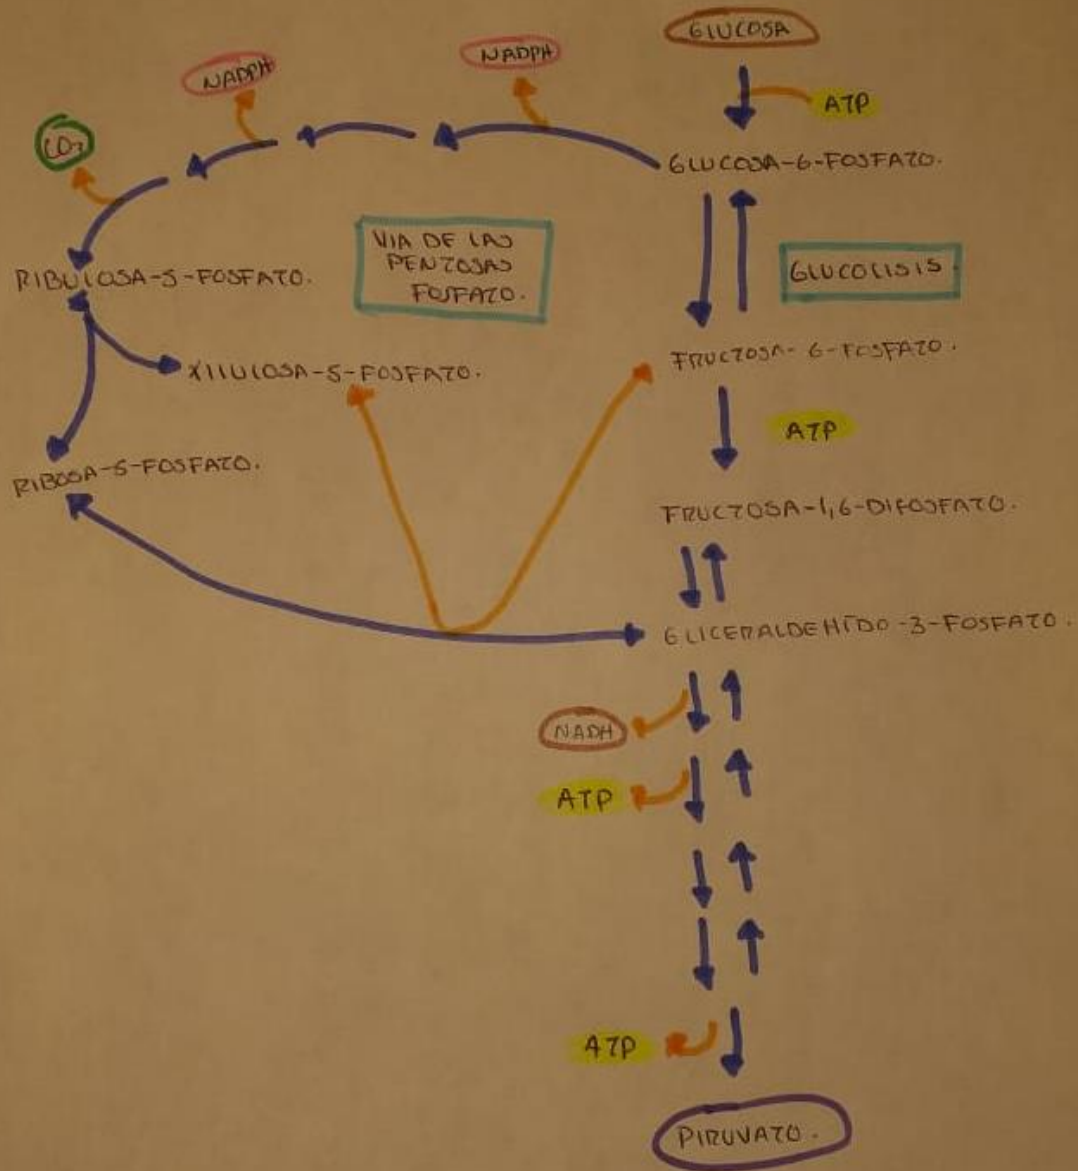 GLUCOSA
NADPH
NADPH
ATP
CO2
GLUCOSA-6-FOSFATO.
VIA DE LAS
PENTOSAS
FOSFATO.
GLUCOLISIS.
RIBULOSA-5-FOSFATO.
FRUCTOSA-6-FOSFATO.
XILULOSA-5-FOSFATO.
ATP
RIBOSA-5-FOSFATO.
FRUCTOSA-1,6-DIFOSFATO.
GLICERALDEHIDO-3-FOSFATO.
NADH
ATP
ATP
PIRUVATO.